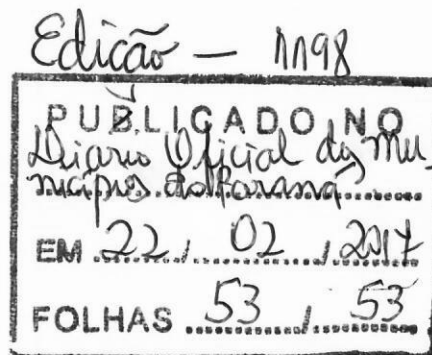 Edição — 1198
PUBLICADO NO
Diário Oficial dos Mu-
nicípios do Paraná
EM 22 / 02 / 2017
FOLHAS 53 / 53